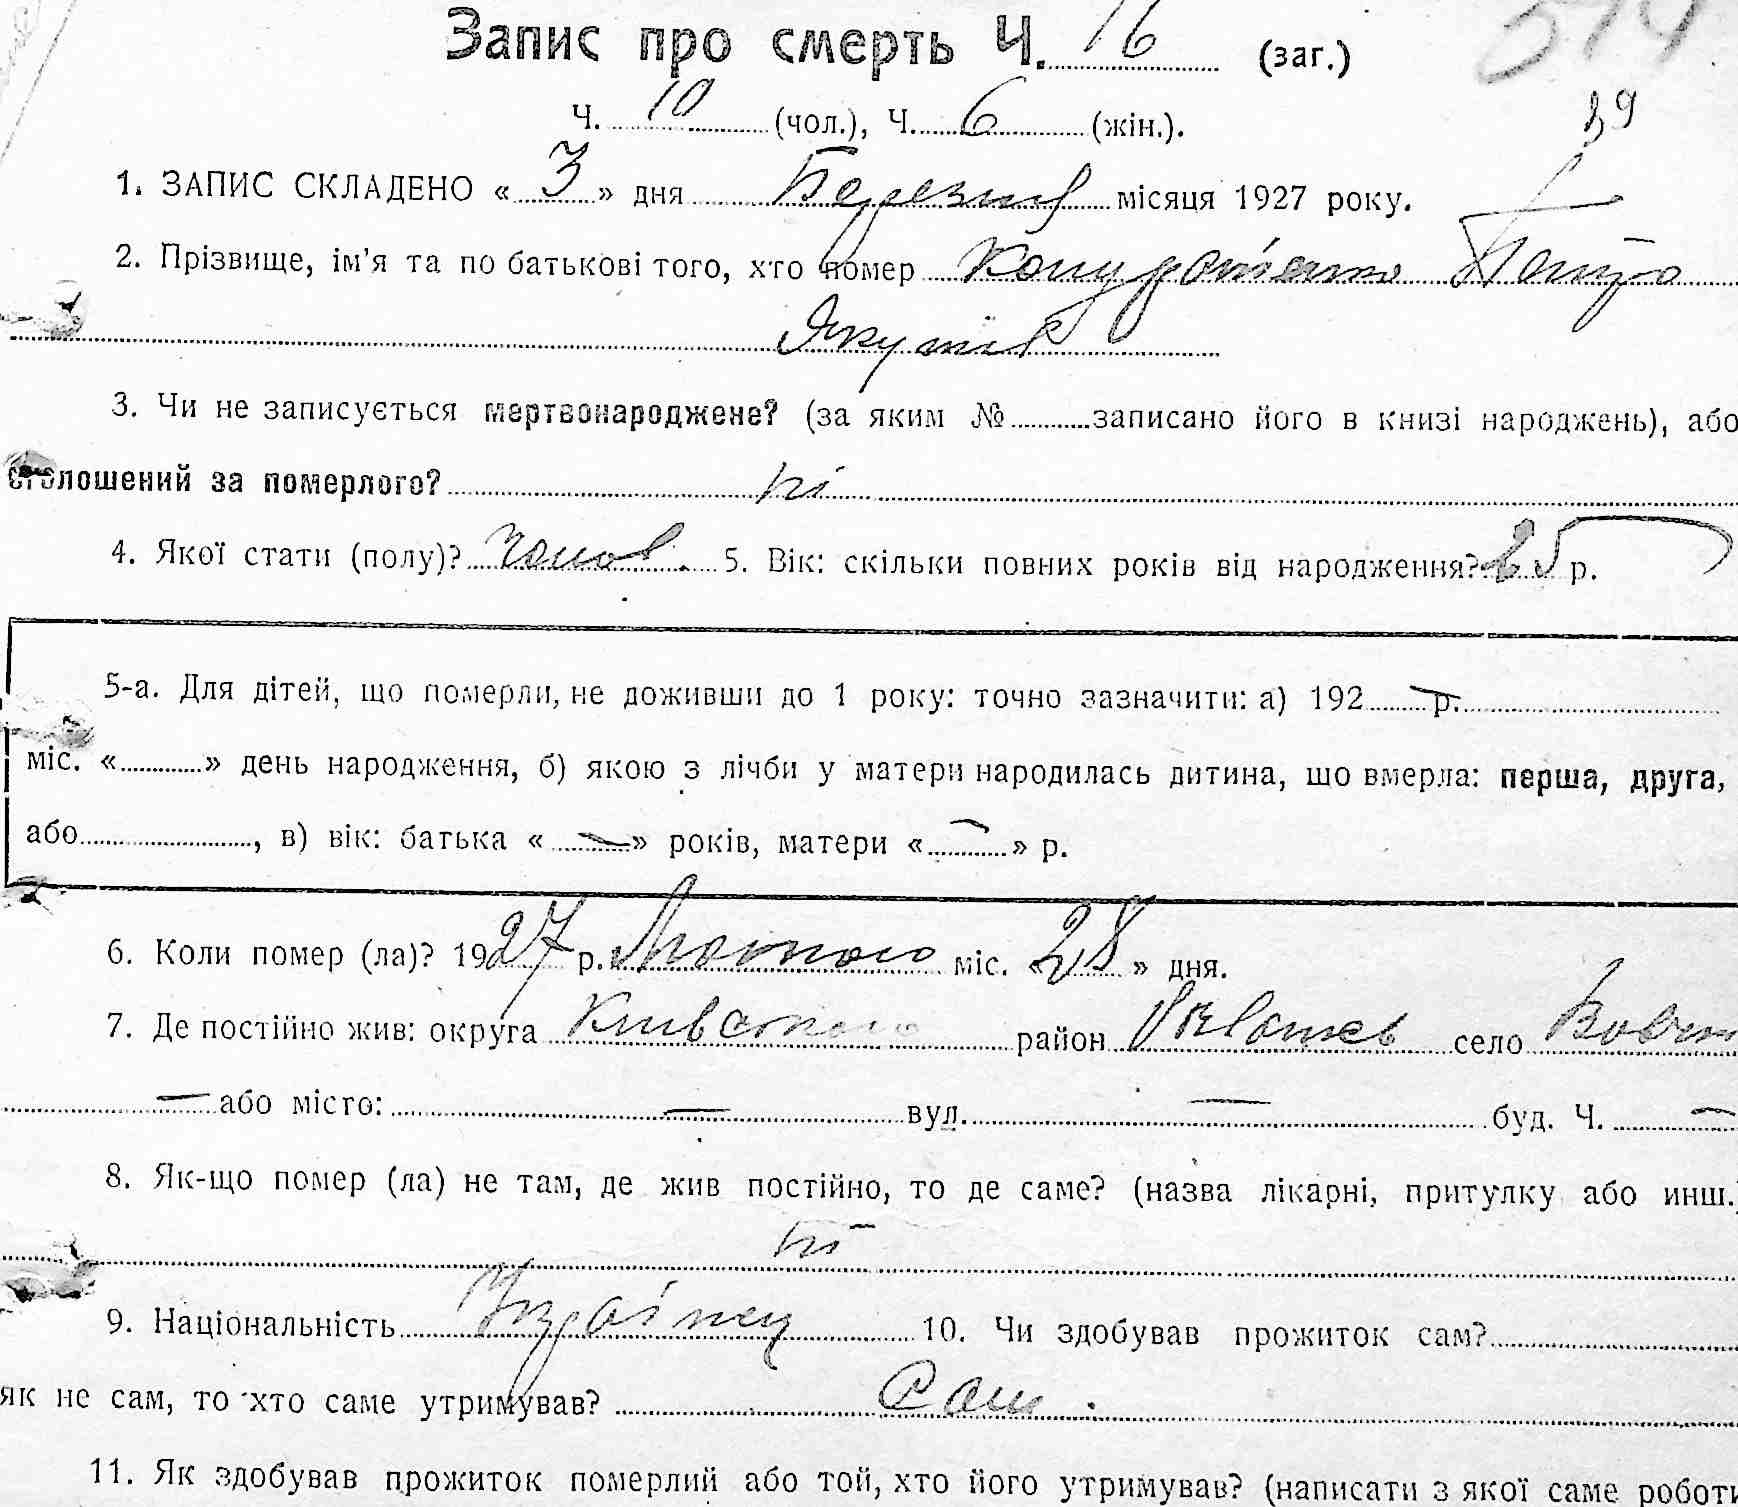 Запис про смерть Ч. 16 (заг.)
Ч. 10 (чол.), Ч. 6 (жін.).
39
1. ЗАПИС СКЛАДЕНО « 3 » дня Березня місяця 1927 року.
2. Прізвище, ім'я та по батькові того, хто помер Кондратенко Петро
3. Чи не записується мертвонароджене? (за яким № записано його в книзі народжень), або
оголошений за померлого? ні
4. Якої стати (полу)? чолов. 5. Вік: скільки повних років від народження? 25 р.
5-а. Для дітей, що померли, не доживши до 1 року: точно зазначити: а) 192 — р.
міс. « » день народження, б) якою з лічби у матери народилась дитина, що вмерла: перша, друга,
або , в) вік: батька « — » років, матери « — » р.
6. Коли помер (ла)? 1927 р. Лютого міс. « 28 » дня.
7. Де постійно жив: округа район село
— або місто: — вул. — буд. Ч. —
8. Як-що помер (ла) не там, де жив постійно, то де саме? (назва лікарні, притулку або инш.)
ні
9. Національність Українец 10. Чи здобував прожиток сам?
як не сам, то хто саме утримував? Сам.
11. Як здобував прожиток померлий або той, хто його утримував? (написати з якої саме роботи